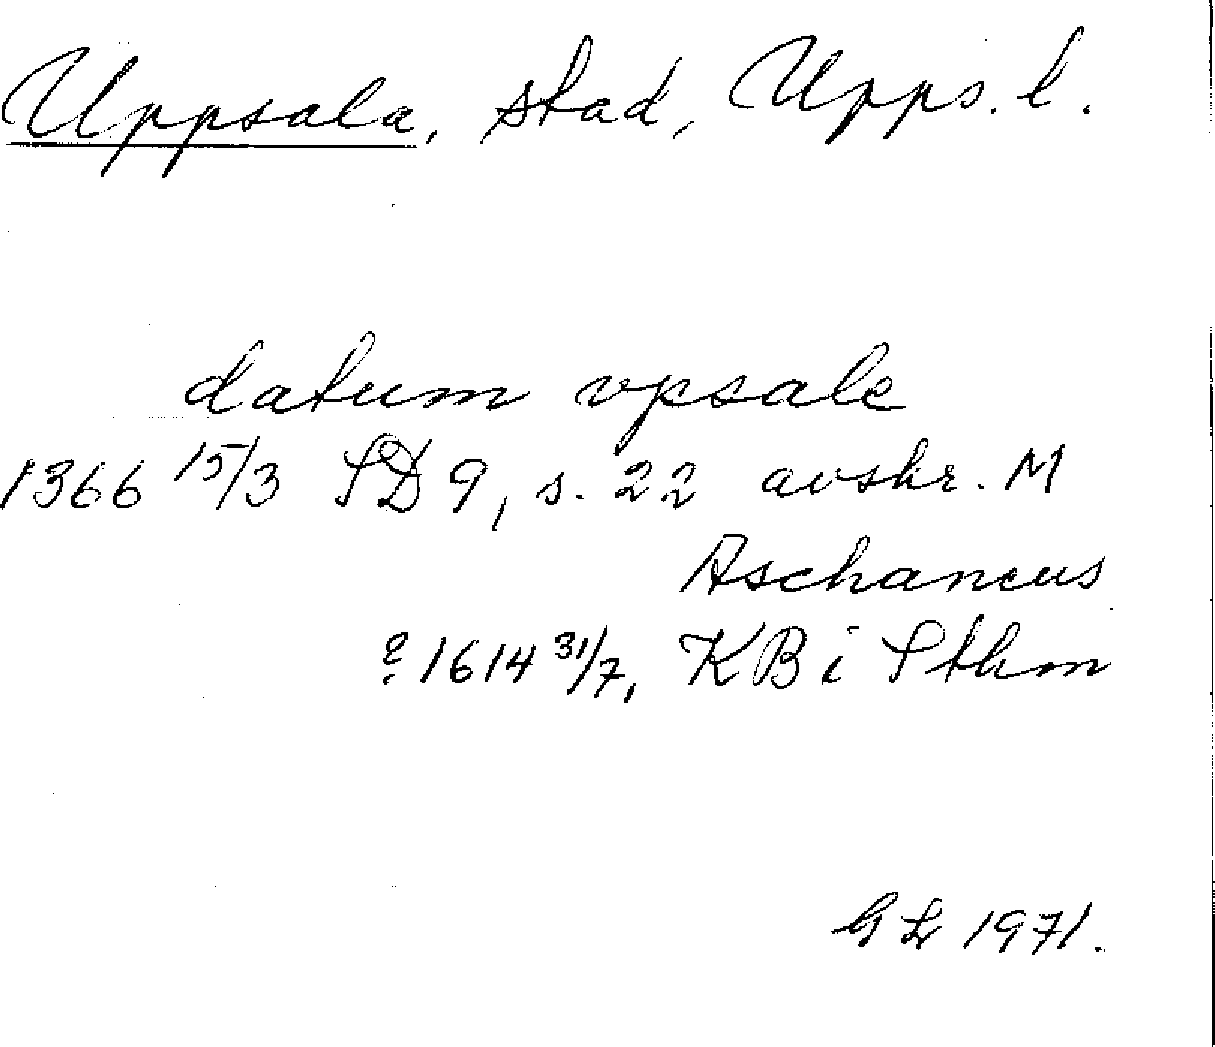 Uppsala, stad, Upps. l.
datum vpsale
1366 15/3 SD 9, s. 22 avskr. M
Aschaneus
? 1614 31/7, KB i Sthm
GL 1971.